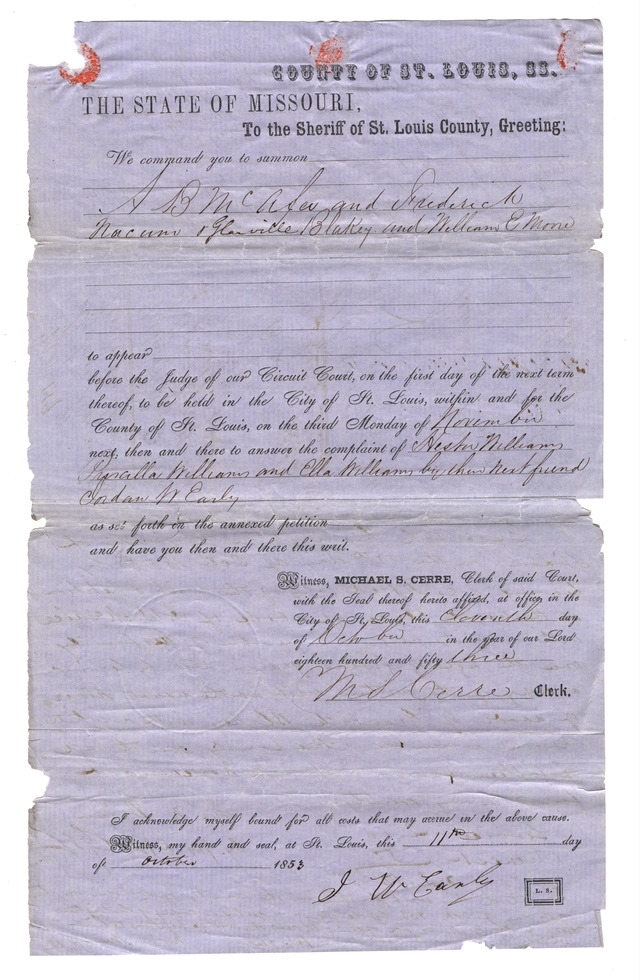 COUNTY OF ST. LOUIS, SS.
THE STATE OF MISSOURI,
To the Sheriff of St. Louis County, Greeting:
We command you to summon
A B McAfee and Frederick
Norcum & Glanville Blakey and William E Moore
to appear
before the Judge of our Circuit Court, on the first day of the next term
thereof, to be held in the City of St. Louis, within and for the
County of St. Louis, on the third Monday of November
next, then and there to answer the complaint of Hester Williams
Priscilla Williams and Ella Williams by their next friend
Jordan W Early
as set forth in the annexed petition
and have you then and there this writ.
Witness, MICHAEL S. CERRE, Clerk of said Court,
with the Seal thereof hereto affixed, at office in the
City of St. Louis, this Eleventh day
of October in the year of our Lord
eighteen hundred and fifty three
M S Cerre Clerk.
I acknowledge myself bound for all costs that may accrue in the above cause.
Witness, my hand and seal, at St. Louis, this 11th day
of October 1853
J W Early L. S.